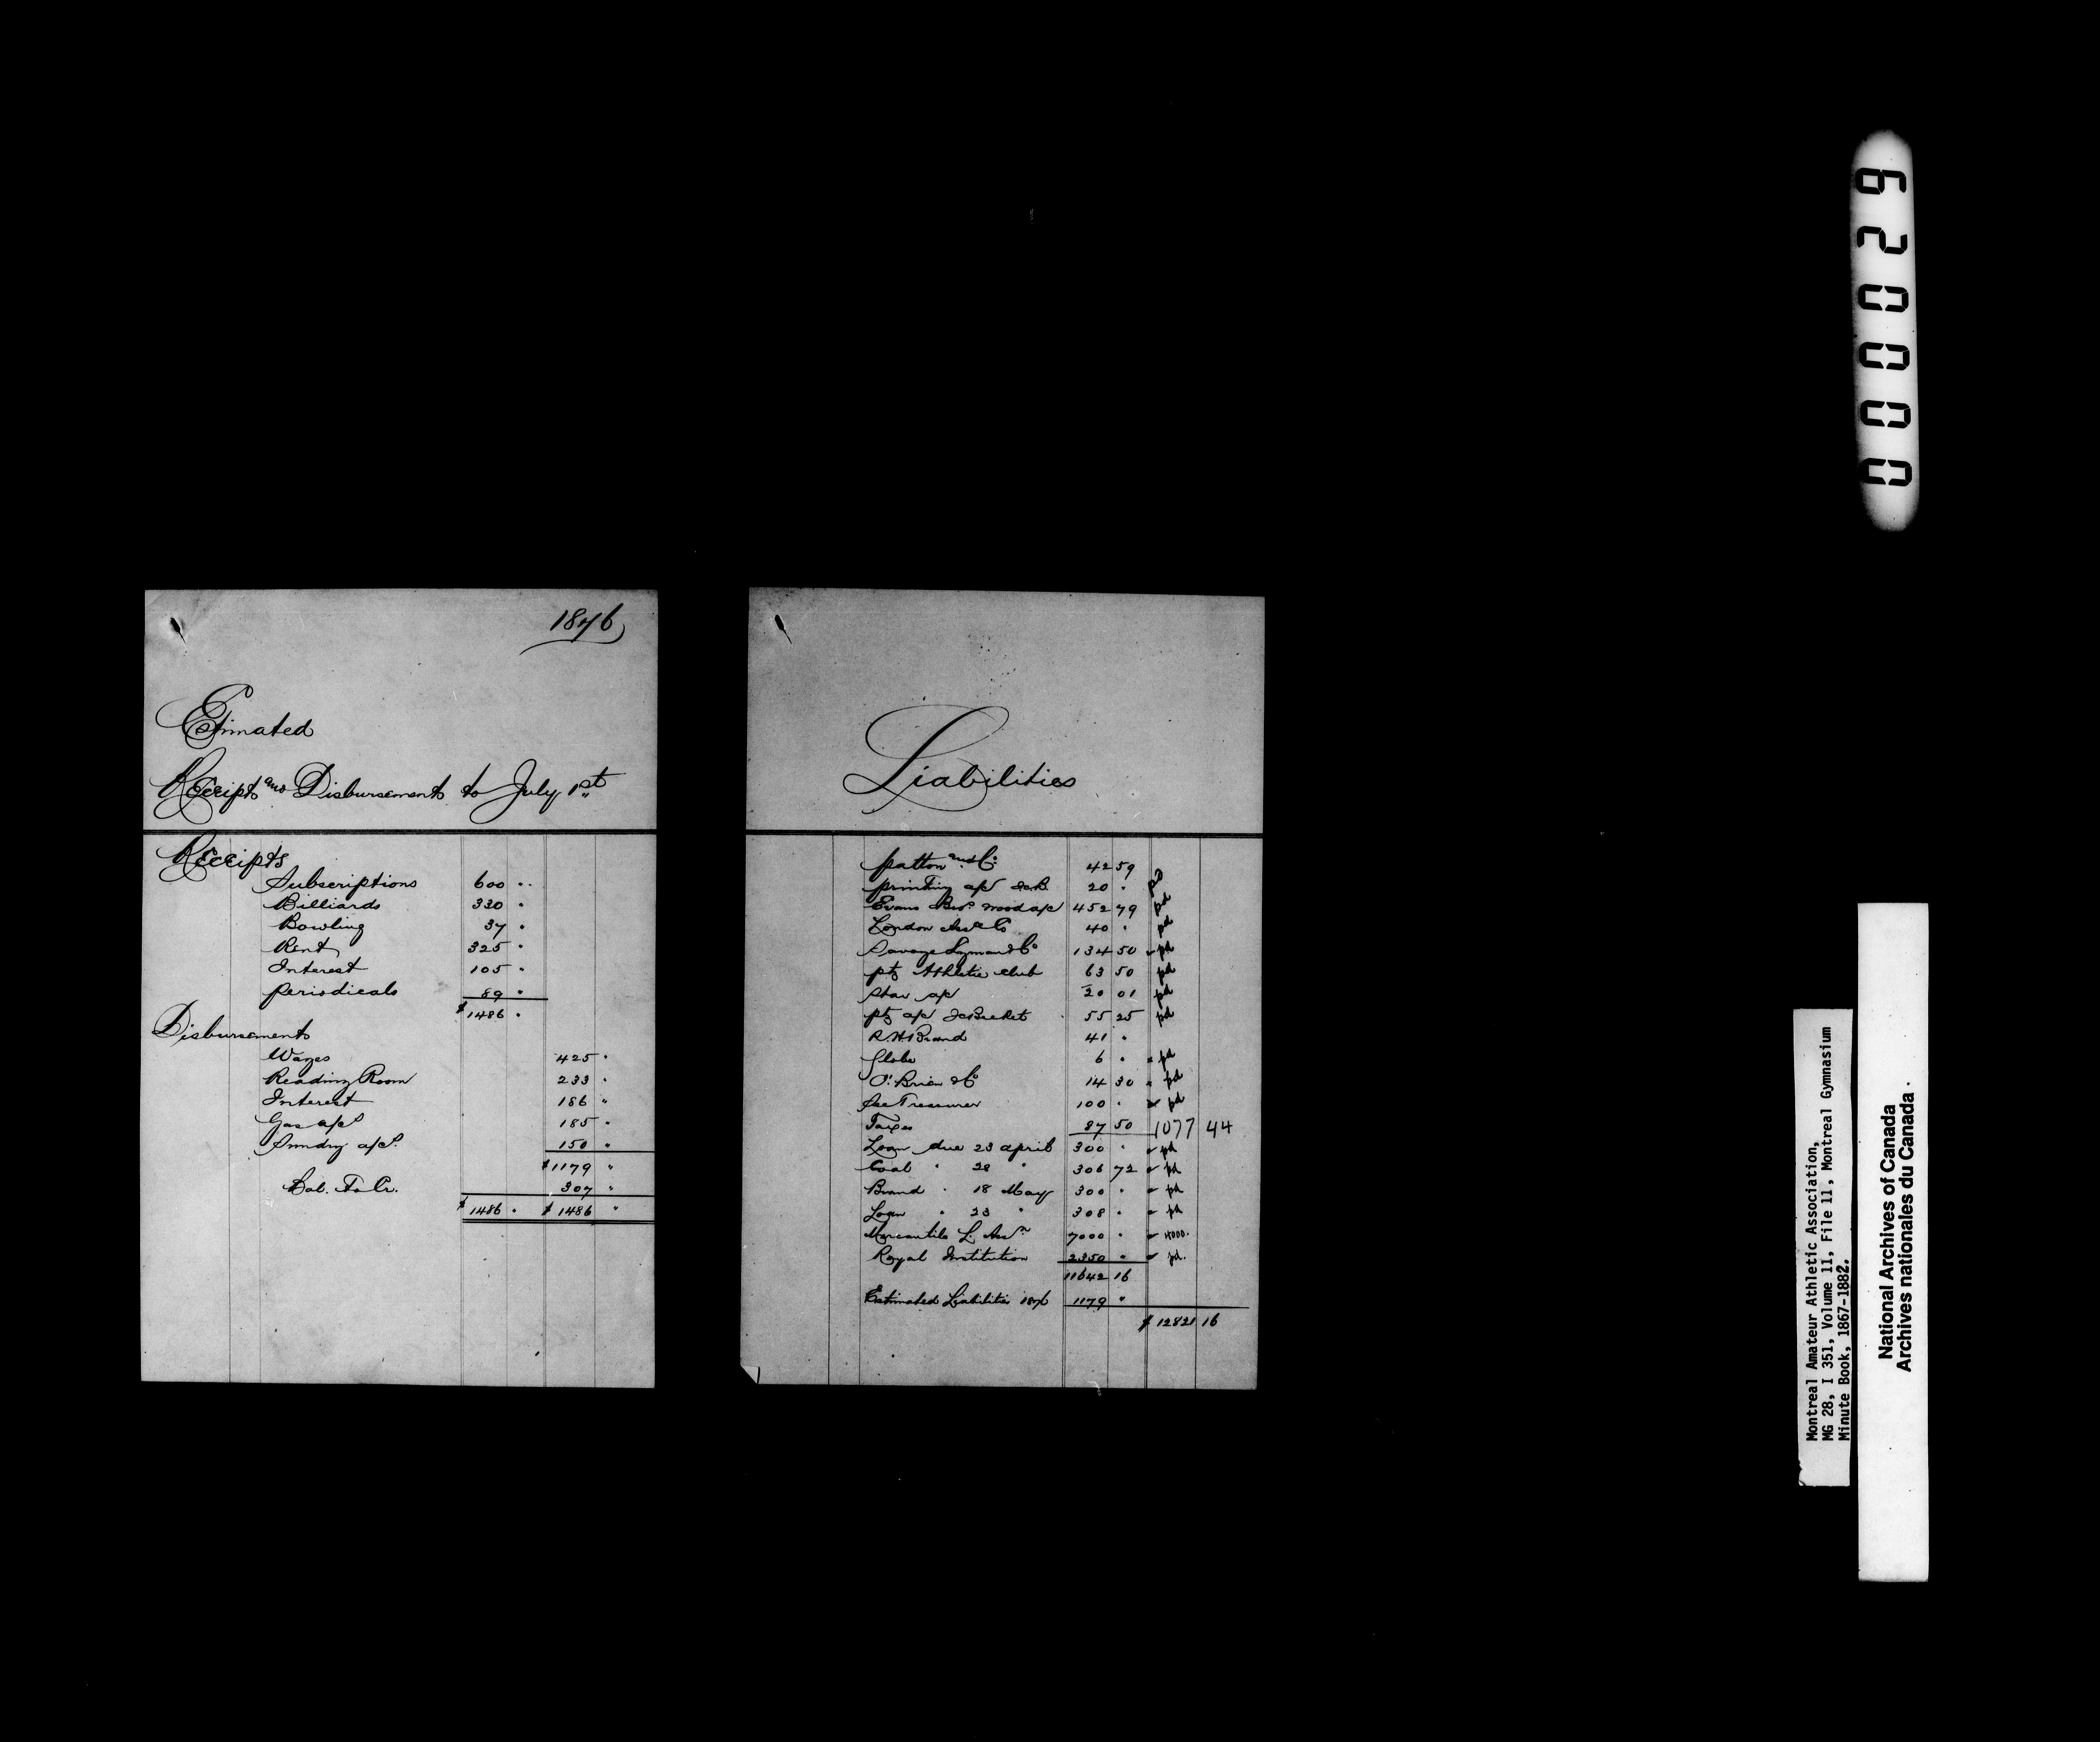 1876
Estimated
Receipts and Disbursements to July 1st
Receipts
Subscriptions 600 "
Billiards 330 "
Bowling 37 "
Rent 325 "
Interest 105 "
Periodicals 89 "
$1486 "
Disbursements
Wages 425 "
Reading Room 233 "
Interest 186 "
Gas a/c 185 "
Sundry a/cs. 150 "
$1179 "
Bal. To Cr. 307 "
$1486 " $1486 "
Liabilities
Patton and Co. 42 59
printing a/c 20 " pd
Evans Bros. wood a/c 452 79 pd
London Assce Co 40 " pd
Savage Lyman & Co 134 50 pd
ptg Athletic club 63 50 pd
Star a/c 20 01 pd
ptg a/c JcBecket 55 25 pd
R.H. Brand 41 "
Globe 6 " pd
O'Brien & Co 14 30 pd
Sec Treasurer 100 " pd
Taxes 87 50 1077 44
Loan due 23 april 300 " pd
Coal " 28 " 306 72 pd
Brand " 18 May 300 " pd
Loan " 23 " 308 " pd
Mercantile L. Assn 7000 " 4000.
Royal Institution 2350 " pd.
11642 16
Estimated Liabilities 1876 1179 "
$12821 16
000029
Montreal Amateur Athletic Association,
MG 28, I 351, Volume 11, File 11, Montreal Gymnasium
Minute Book, 1867-1882.
National Archives of Canada
Archives nationales du Canada